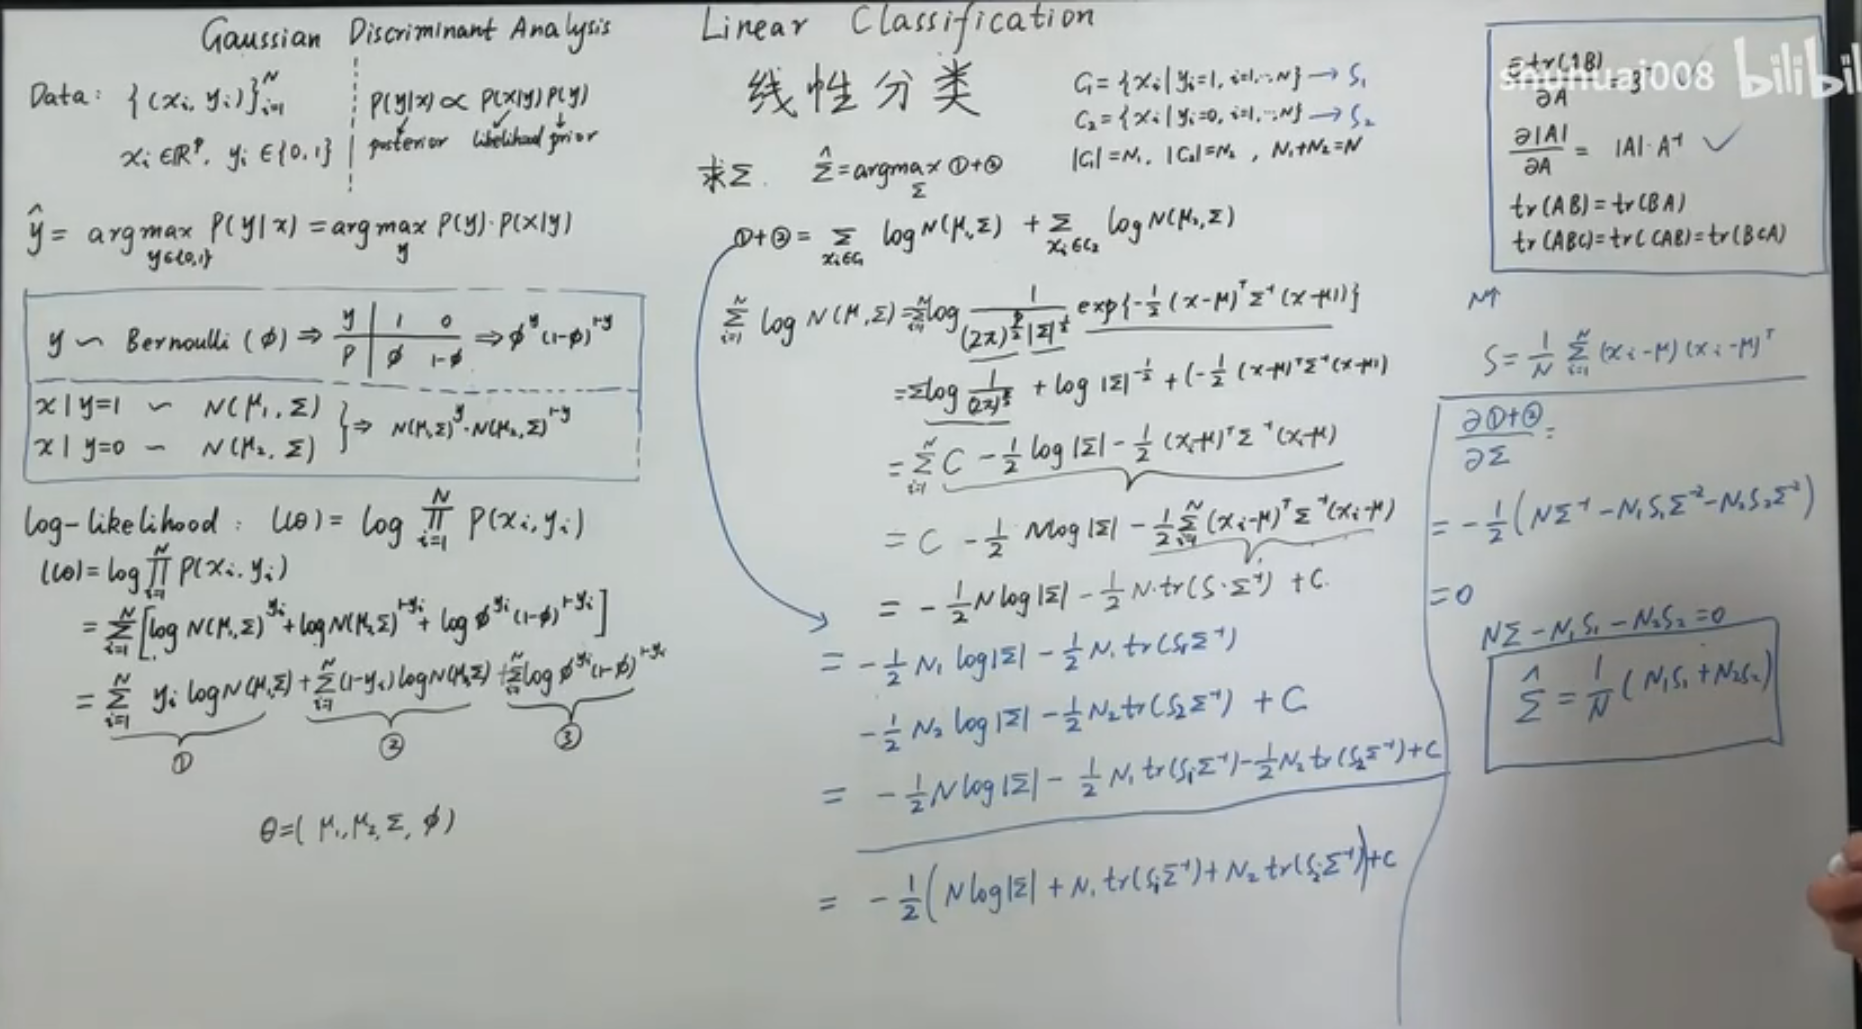 Gaussian Discriminant Analysis
Data: {(xᵢ, yᵢ)}ᵢ₌₁ᴺ
xᵢ ∈ ℝᵖ, yᵢ ∈ {0,1}
P(y|x) ∝ P(x|y) P(y)
posterior likelihood prior
ŷ = argmax_{y∈{0,1}} P(y|x) = argmax_y P(y)·P(x|y)
y ~ Bernoulli (φ) ⇒ y | 1 0 ⇒ φ^y (1-φ)^{1-y}
P | φ 1-φ
x|y=1 ~ N(μ₁, Σ)
x|y=0 ~ N(μ₂, Σ)
} ⇒ N(μ₁,Σ)^y · N(μ₂,Σ)^{1-y}
log-likelihood: l(θ) = log ∏ᵢ₌₁ᴺ P(xᵢ, yᵢ)
l(θ) = log ∏ᵢ₌₁ᴺ P(xᵢ, yᵢ)
= Σᵢ₌₁ᴺ [log N(μ₁,Σ)^{yᵢ} + log N(μ₂,Σ)^{1-yᵢ} + log φ^{yᵢ} (1-φ)^{1-yᵢ}]
= Σᵢ₌₁ᴺ yᵢ log N(μ₁,Σ) + Σᵢ₌₁ᴺ (1-yᵢ) log N(μ₂,Σ) + Σᵢ₌₁ᴺ log φ^{yᵢ} (1-φ)^{1-yᵢ}
① ② ③
θ = (μ₁, μ₂, Σ, φ)
Linear Classification
线性分类
C₁ = {xᵢ | yᵢ=1, i=1,…,N} → S₁
C₂ = {xᵢ | yᵢ=0, i=1,…,N} → S₂
|C₁|=N₁, |C₂|=N₂, N₁+N₂=N
求Σ. Σ̂ = argmax_Σ ①+②
①+② = Σ_{xᵢ∈C₁} log N(μ₁,Σ) + Σ_{xᵢ∈C₂} log N(μ₂,Σ)
Σᵢ₌₁ᴺ log N(μ,Σ) = Σᵢ₌₁ᴺ log 1/((2π)^{p/2} |Σ|^{1/2}) exp{-1/2 (x-μ)ᵀ Σ⁻¹ (x-μ)}
= Σ log 1/(2π)^{p/2} + log |Σ|^{-1/2} + (-1/2 (x-μ)ᵀ Σ⁻¹ (x-μ))
= Σᵢ₌₁ᴺ C - 1/2 log |Σ| - 1/2 (xᵢ-μ)ᵀ Σ⁻¹ (xᵢ-μ)
= C - 1/2 N log |Σ| - 1/2 Σᵢ₌₁ᴺ (xᵢ-μ)ᵀ Σ⁻¹ (xᵢ-μ)
= -1/2 N log |Σ| - 1/2 N·tr(S·Σ⁻¹) + C.
= -1/2 N₁ log |Σ| - 1/2 N₁ tr(S₁Σ⁻¹)
-1/2 N₂ log |Σ| - 1/2 N₂ tr(S₂Σ⁻¹) + C
= -1/2 N log |Σ| - 1/2 N₁ tr(S₁Σ⁻¹) - 1/2 N₂ tr(S₂Σ⁻¹) + C
= -1/2 (N log |Σ| + N₁ tr(S₁Σ⁻¹) + N₂ tr(S₂Σ⁻¹)) + C
shuhuai008 bilibil
∂tr(AB)
∂A
∂|A|/∂A = |A|·A⁻¹ ✓
tr(AB) = tr(BA)
tr(ABC) = tr(CAB) = tr(BCA)
N↑
S = 1/N Σᵢ₌₁ᴺ (xᵢ-μ)(xᵢ-μ)ᵀ
∂①+②/∂Σ =
= -1/2 (NΣ⁻¹ - N₁S₁Σ⁻² - N₂S₂Σ⁻²)
= 0
NΣ - N₁S₁ - N₂S₂ = 0
Σ̂ = 1/N (N₁S₁ + N₂S₂)